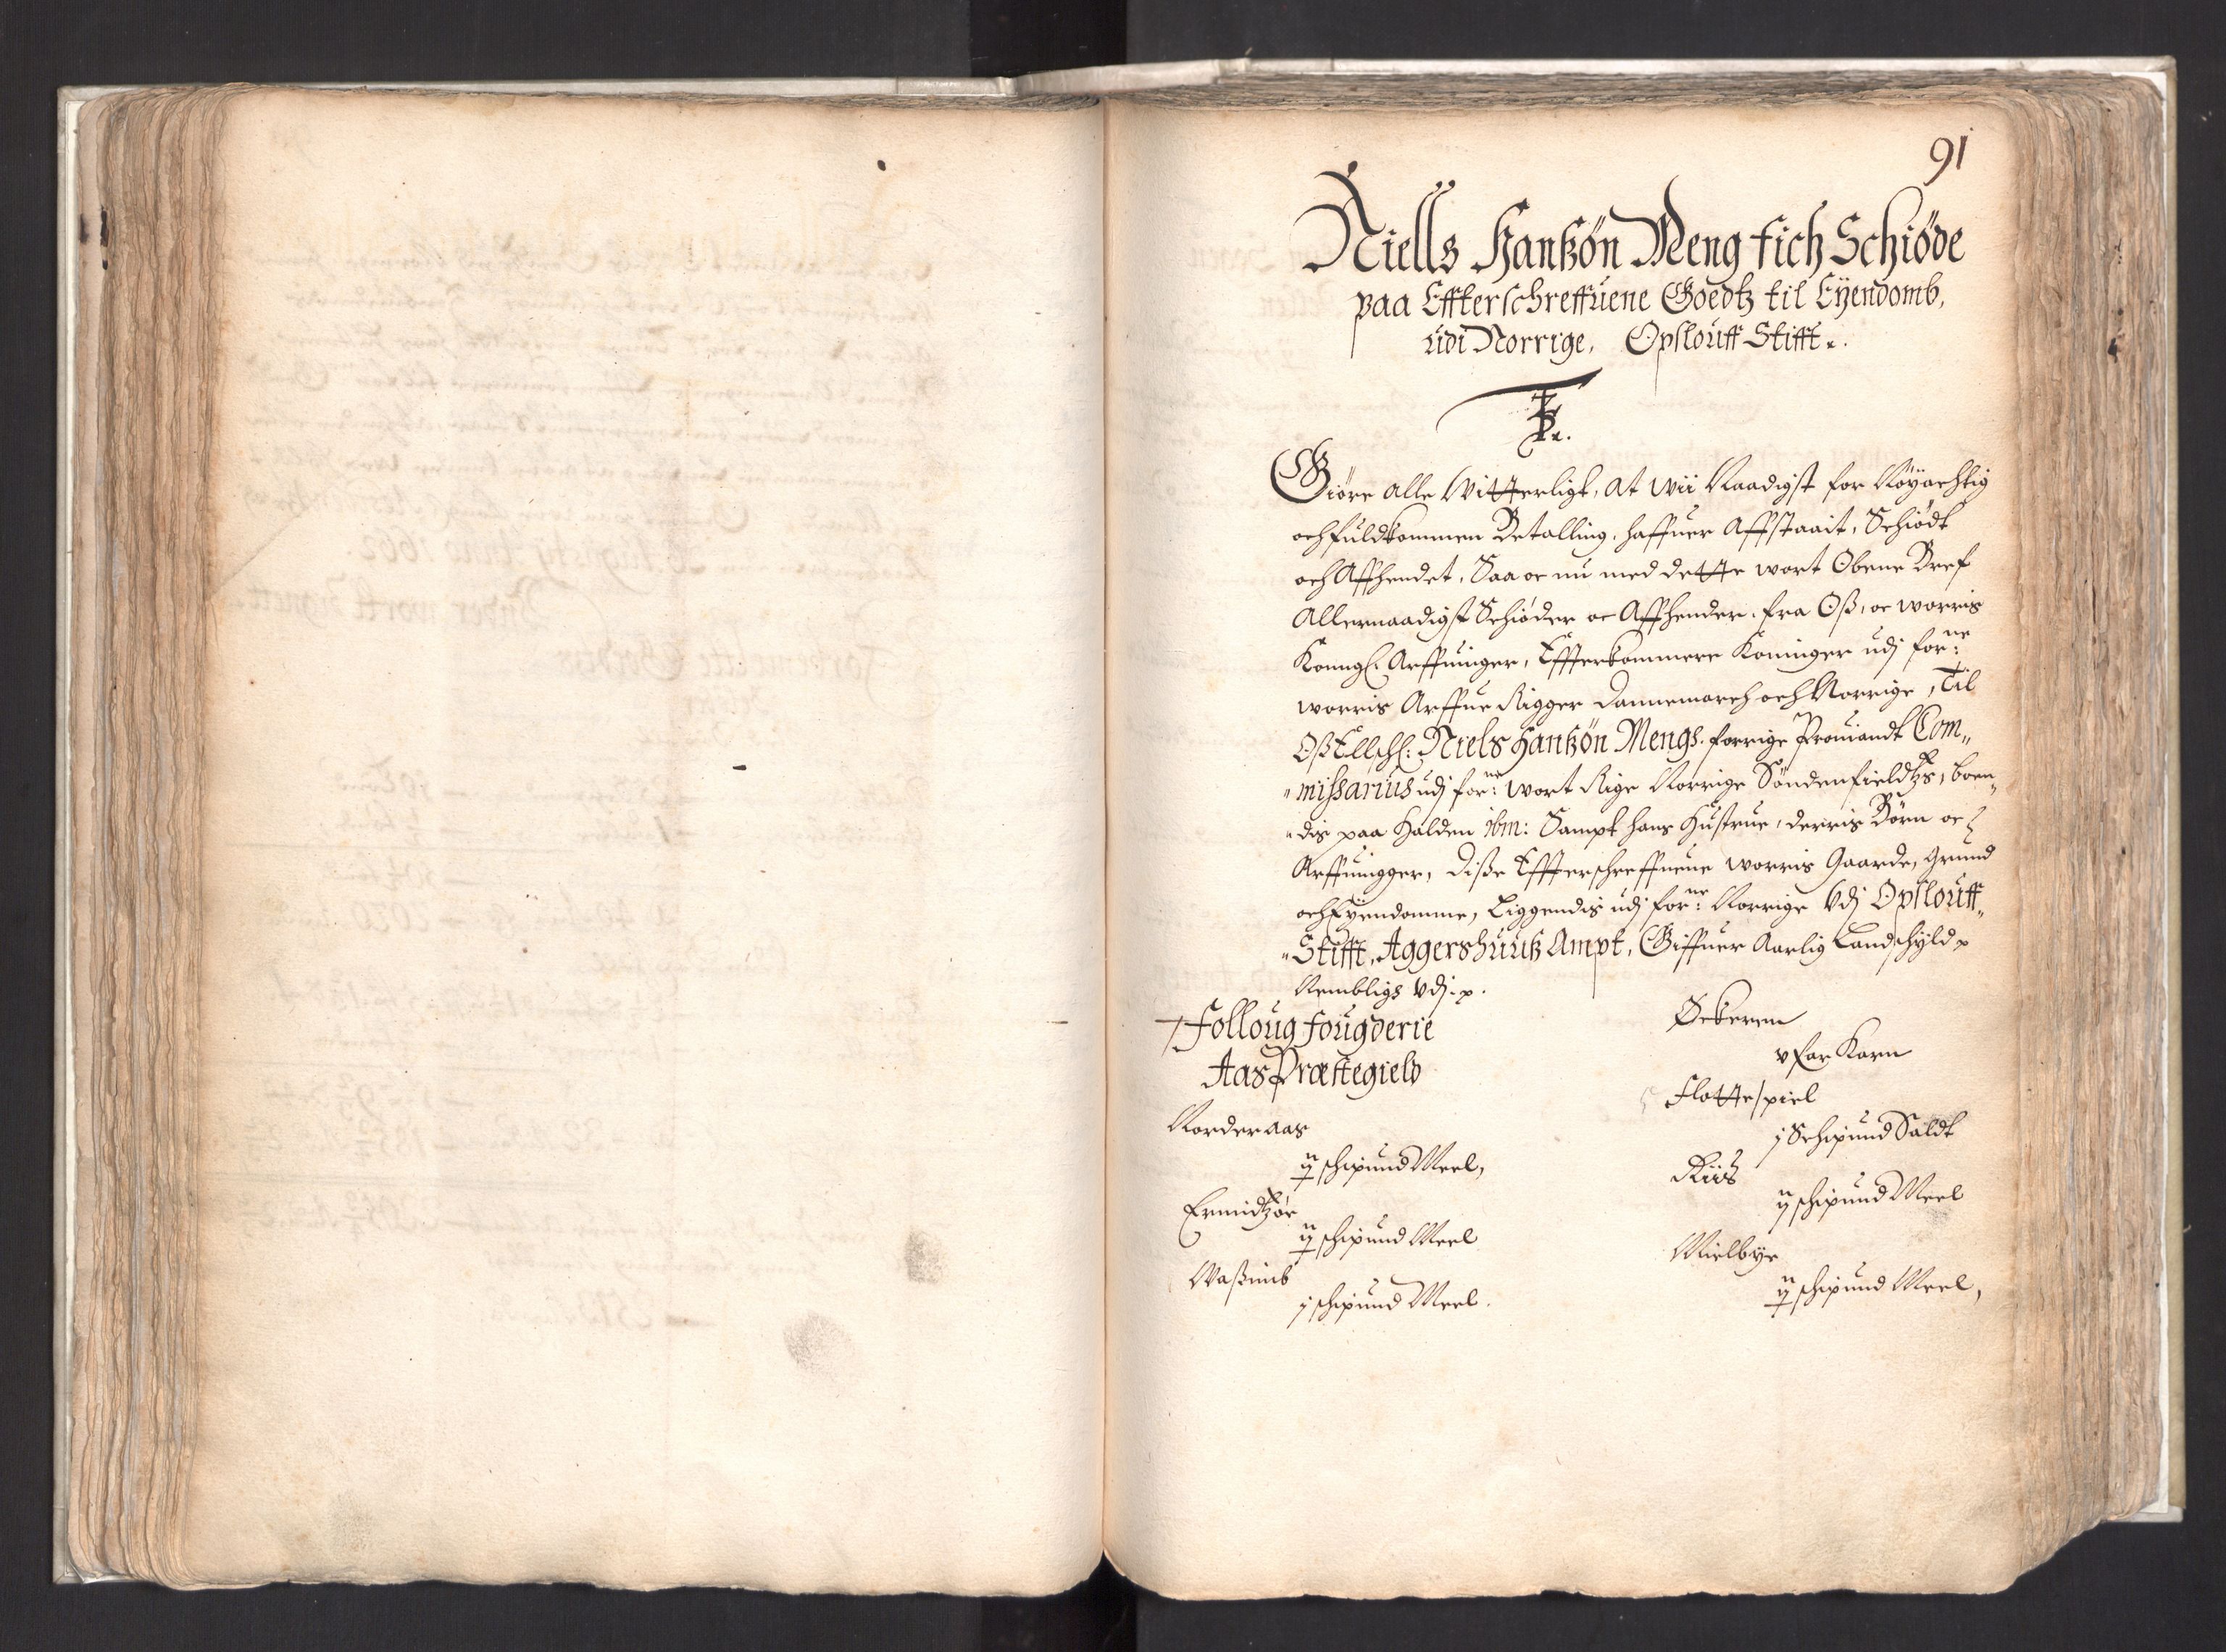 91
Niells Hanßøn Meng fich Schiøde
paa Effterschreffuene Goedtz til Eÿendomb,
udi Norrige, Opslouff Stifft
Giöre alle Witterligt, at wii Naadigst for Nöyachtig
och fuldkommen Betalling, haffuer Affstaait, Schiödt
och Affhendet, Saa oc nu med dette wort Obene Bref
Allernaadigst Schiöder oc Affhender, fra Oß, oc worris
Konngl: Arffuinger, Effterkommere Koninger udj forne:
worris Arffue Rigger Dannemarch och Norrige, Til
Oß Ellschl: Niels Hanßøn Mengs, forrige Prouiandt Com„
„missarius udj forne: wort Rige Norrige Söndenfieldtzs, boen„
„dis paa Halden ibm: Sampt hans Hustrue, derris Börn oc
Arffuingger, disse Effterschreffuene worris Gaarde, Grund
och Eÿendomme, Liggendis udj forne: Norrige Udj Opslouff„
„Stifft, Aggershuuß Ampt, Giffuer Aarlig Landschÿld
Nembligs Udj:
Folloug fougderie
Aas Præstegield
Norder aas
ij schipund Meel,
Ermidtzör
ij schipund Meel
Waßumb
j schipund Meel.
Øekeren
Korn
Flottespiel
j Schipund Saldt
Riis
ij schipund Meel
Mielbÿe
ij schipund Meel,